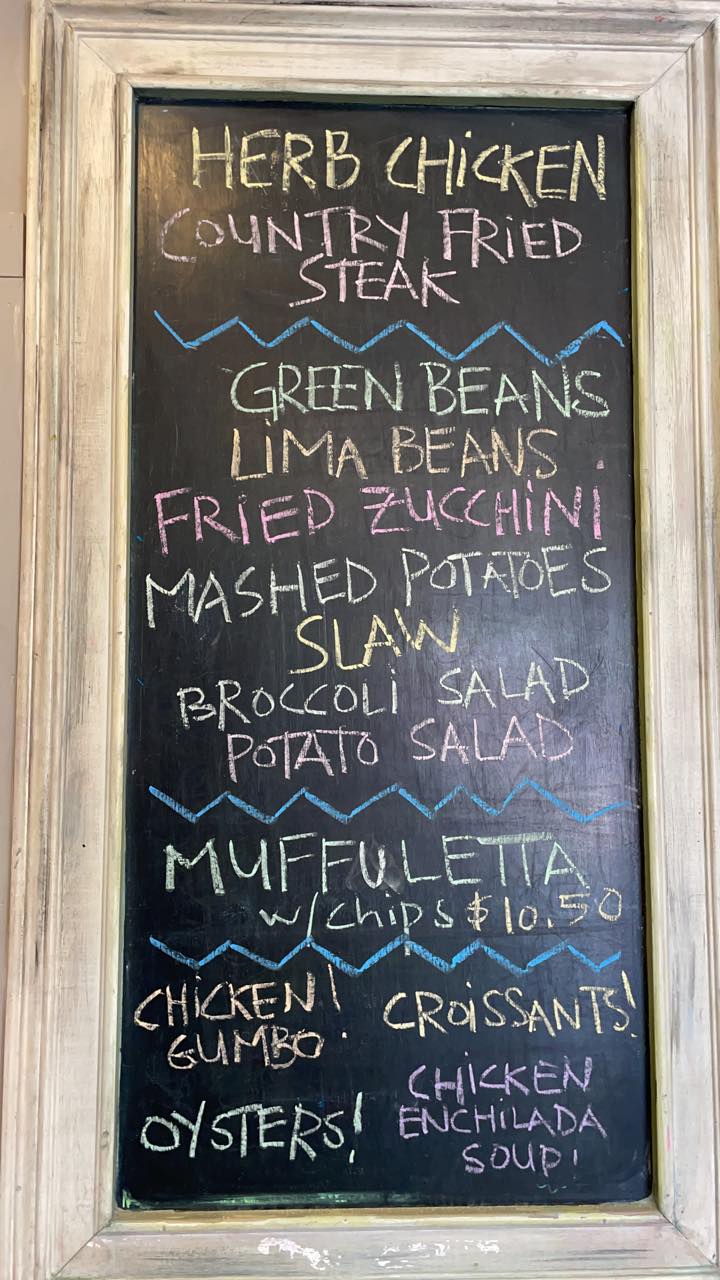 HERB CHiCKEN
COUNTRY FRiED
STEAK
GREEN BEANS
LiMA BEANS
FRiED ZUCCHiNi
MASHED POTATOES
SLAW
BROCCOLi SALAD
POTATO SALAD
MUFFULETTA
w/Chips $10.50
CHiCKEN!
GUMBO
CROiSSANTS!
OYSTERS!
CHiCKEN
ENCHiLADA
SOUP!